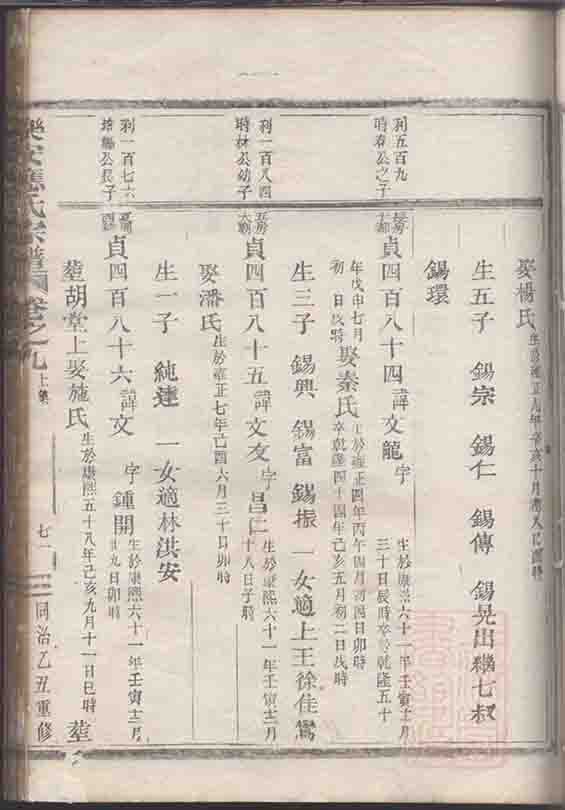 娶楊氏 生於雍正九年辛亥十月
生五子 錫宗 錫仁 錫傳 錫晃出繼七叔
錫環
利五百九
時春公之子
貞四百八十四 諱文龍 字 生於康熙六十一年壬寅十二月
三十日辰時卒於乾隆五十
年戊申七月
初 日戌時 娶秦氏 生於雍正四年丙午四月初四日卯時
卒乾隆四十四年己亥五月初二日戌時
生三子 錫興 錫富 錫振 一女適上王徐佳鸞
利一百八四
時林公幼子
貞四百八十五 諱文 字昌仁 生於康熙六十一年壬寅十二月
十八日子時
娶潘氏 生於雍正七年己酉六月三十日卯時
生一子 純達 一女適林洪安
利一百七六
公長子
貞四百八十六 諱文 字鍾開 生於康熙六十一年壬寅十二月
九日卯時
塟胡堂上娶施氏 生於康熙五十八年己亥九月十一日巳時 塟
樂安 氏宗譜 卷之九 上集 七一 同治乙丑重修